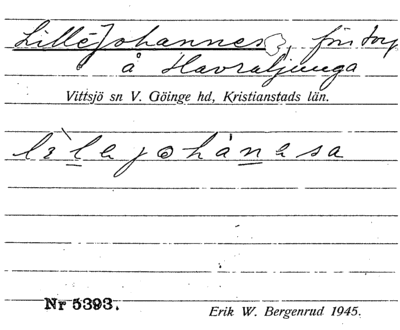 LilleJohannes, för torp
å Havraljunga
Vittsjö sn V. Göinge hd, Kristianstads län.
lìlejohànesa
Nr 5393.
Erik W. Bergenrud 1945.